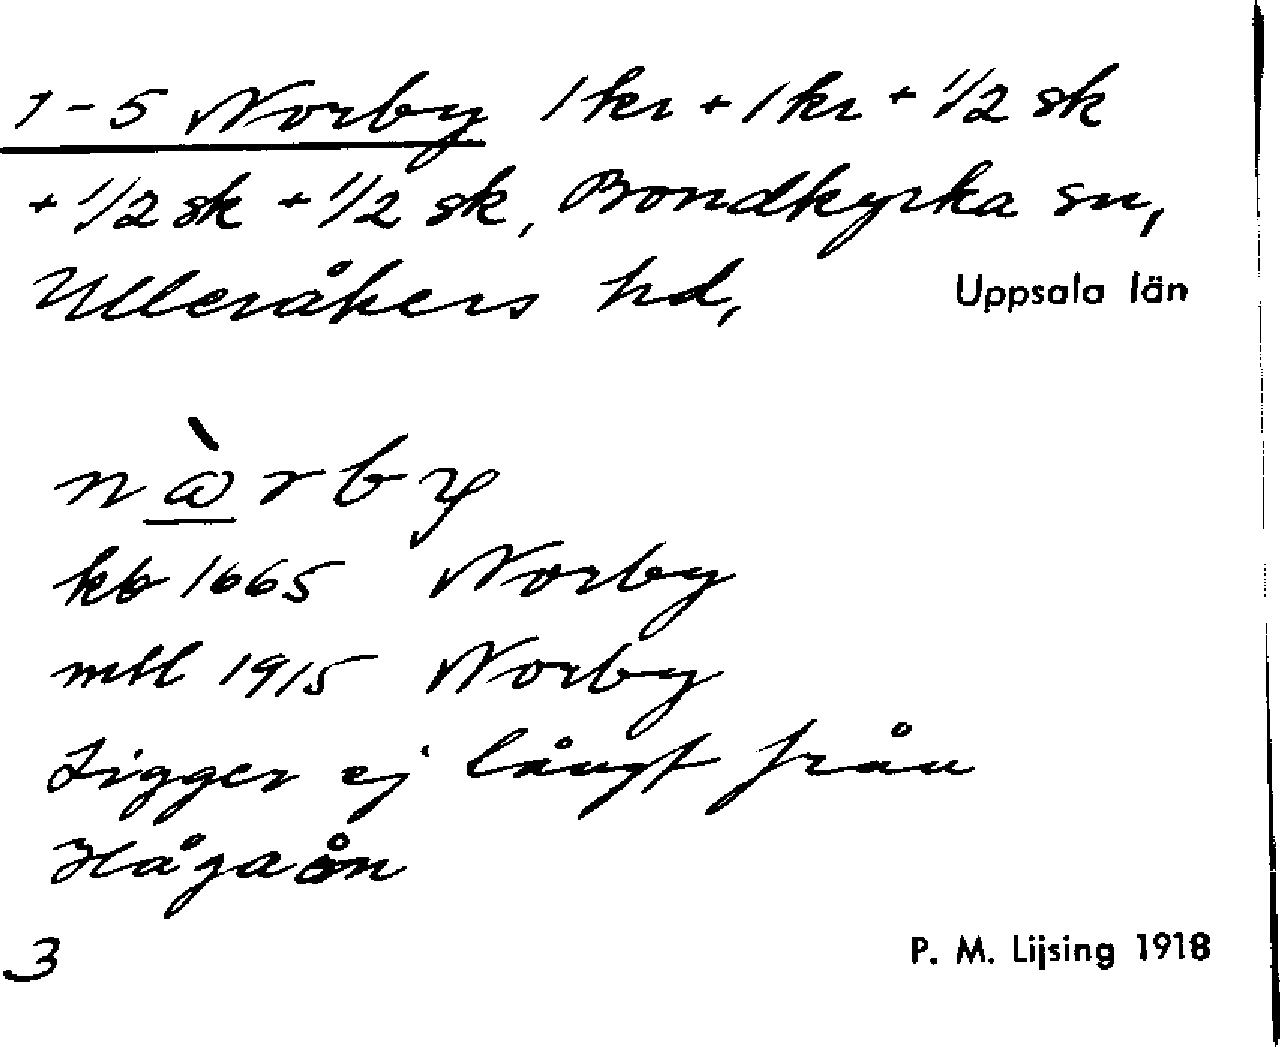 1-5 Norby 1 kr + 1 kr + 1/2 sk
+ 1/2 sk + 1/2 sk, Bondkyrka sn,
Ulleråkers hd, Uppsala län
nàrby
kb 1665 Norby
mtl 1915 Norby
Ligger ej långt från
Hågaån
3 P. M. Lijsing 1918